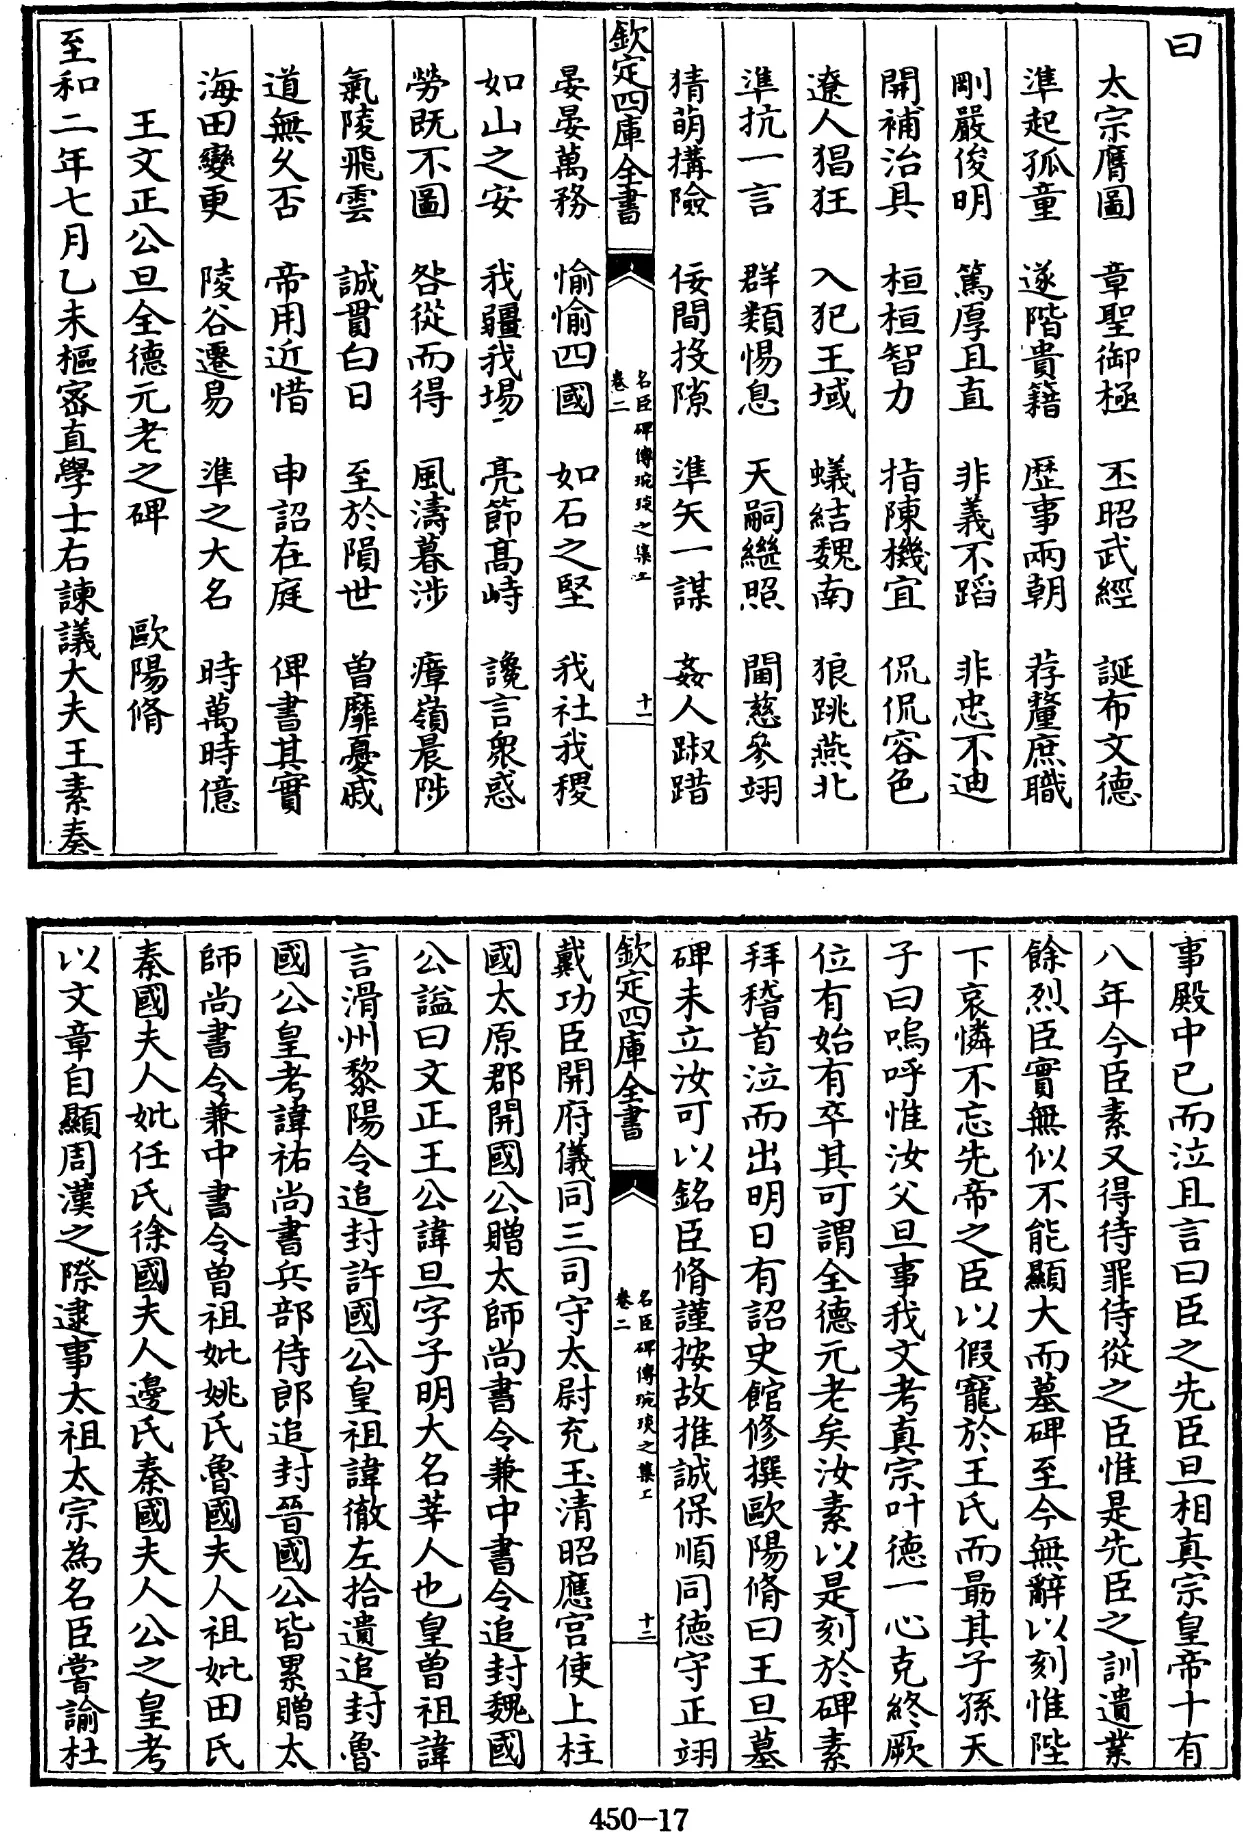 曰
太宗膺圖 章聖御極 丕昭武經 誕布文德
準起孤童 遂階貴籍 歴事兩朝 荐釐庶職
剛嚴俊明 篤厚且直 非義不蹈 非忠不迪
開補治具 桓桓智力 指陳機宜 侃侃容色
遼人猖狂 入犯王域 蟻結魏南 狼跳燕北
準抗一言 群類惕息 天嗣繼照 閫慈參翊
猜萌搆險 佞間投隙 準矢一謀 姦人踧踖
欽定四庫全書
名臣碑傳琬琰之集上
卷二
十一
晏晏萬務 愉愉四國 如石之堅 我社我稷
如山之安 我疆我埸 亮節髙峙 讒言衆惑
勞既不圖 咎從而得 風濤暮涉 瘴嶺晨陟
氣陵飛雲 誠貫白日 至於隕世 曽靡憂戚
道無久否 帝用近惜 申詔在庭 俾書其實
海田變更 陵谷遷易 準之大名 時萬時億
王文正公旦全德元老之碑 歐陽脩
至和二年七月乙未樞密直學士右諫議大夫王素奏
事殿中已而泣且言曰臣之先臣旦相真宗皇帝十有
八年今臣素又得待罪侍從之臣惟是先臣之訓遺業
餘烈臣實無似不能顯大而墓碑至今無辭以刻惟陛
下哀憐不忘先帝之臣以假寵於王氏而朂其子孫天
子曰嗚呼惟汝父旦事我文考真宗叶德一心克終厥
位有始有卒其可謂全德元老矣汝素以是刻於碑素
拜稽首泣而出明日有詔史館修撰歐陽脩曰王旦墓
碑未立汝可以銘臣脩謹按故推誠保順同德守正翊
欽定四庫全書
名臣碑傳琬琰之集上
卷二
十二
戴功臣開府儀同三司守太尉充玉清昭應宫使上柱
國太原郡開國公贈太師尚書令兼中書令追封魏國
公謚曰文正王公諱旦字子明大名莘人也皇曽祖諱
言滑州黎陽令追封許國公皇祖諱徹左拾遺追封魯
國公皇考諱祐尚書兵部侍郎追封晉國公皆累贈太
師尚書令兼中書令曽祖妣姚氏魯國夫人祖妣田氏
秦國夫人妣任氏徐國夫人邊氏秦國夫人公之皇考
以文章自顯周漢之際逮事太祖太宗為名臣嘗諭杜
450-17